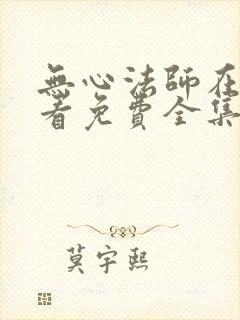 無心法師在
看免費全集
莫宇熙